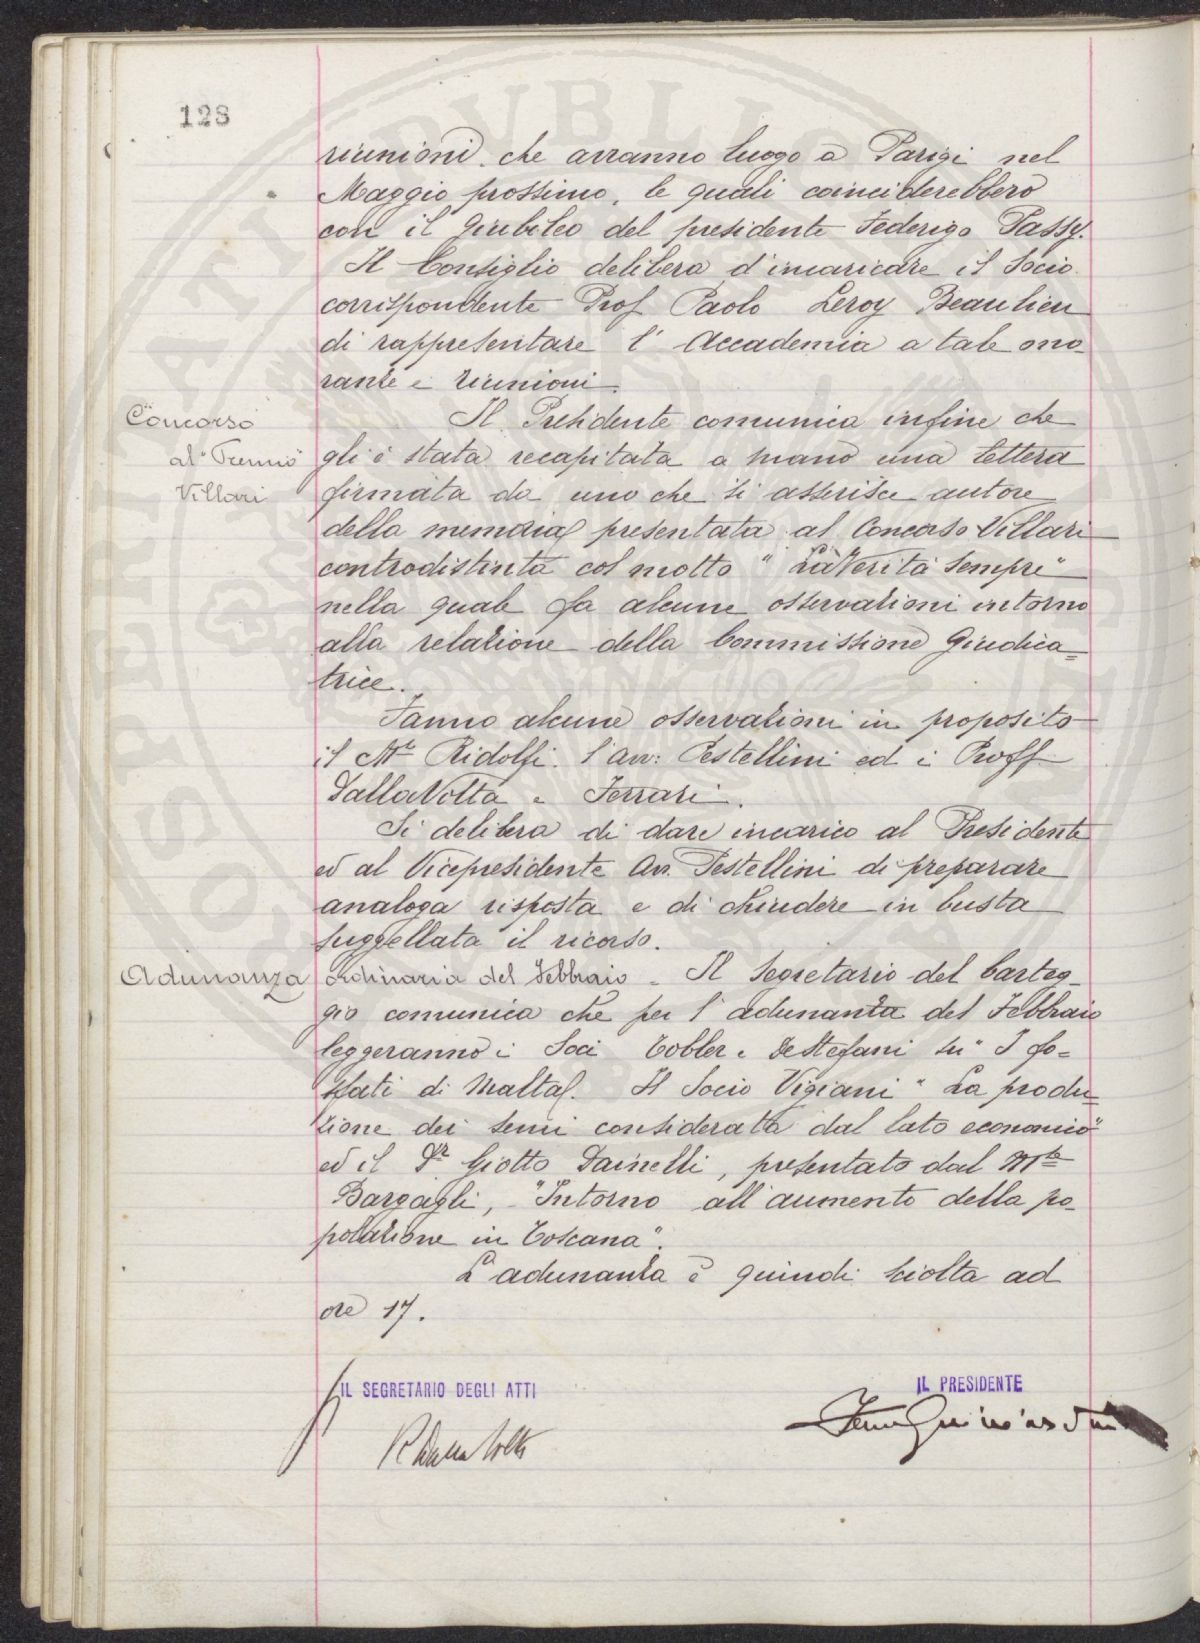 128
riunioni che avranno luogo a Parigi nel
Maggio prossimo, le quali coinciderebbero
con il Giubileo del presidente Federigo Passy.
Il Consiglio delibera d'incaricare il Socio
corrispondente Prof Paolo Leroy Beaulieu
di rappresentare l'Accademia a tale ono-
ranze e riunioni.
Concorso
al "Premio"
Villari
Il Presidente comunica infine che
gli è stata recapitata a mano una lettera
firmata da uno che si asserisce autore
della memoria presentata al Concorso Villari
controdistinta col motto "La Verità Sempre"
nella quale fa alcune osservazioni intorno
alla relazione della Commissione Giudica=
trice.
Fanno alcune osservazioni in proposito
il Mse Ridolfi. l'avv: Pestellini ed i Proff
Dalla Volta e Ferrari.
Si delibera di dare incarico al Presidente
ed al Vicepresidente Avv. Pestellini di preparare
analoga risposta e di chiudere in busta
suggellata il ricorso.
Adunanza ordinaria del Febbraio - Il Segretario del carteg-
gio comunica che per l'adunanza del Febbraio
leggeranno i Soci Tobler e De Stefani su "I fo=
sfati di Malta". Il Socio Vigiani "La produ-
zione dei semi considerata dal lato economico"
ed il Dr Giotto Dainelli, presentato dal Mse
Bargagli, "Intorno all'aumento della po-
polazione in Toscana".
L'adunanza è quindi sciolta ad
ore 17.
IL SEGRETARIO DEGLI ATTI
IL PRESIDENTE
R Dalla Volta
Guicciardini